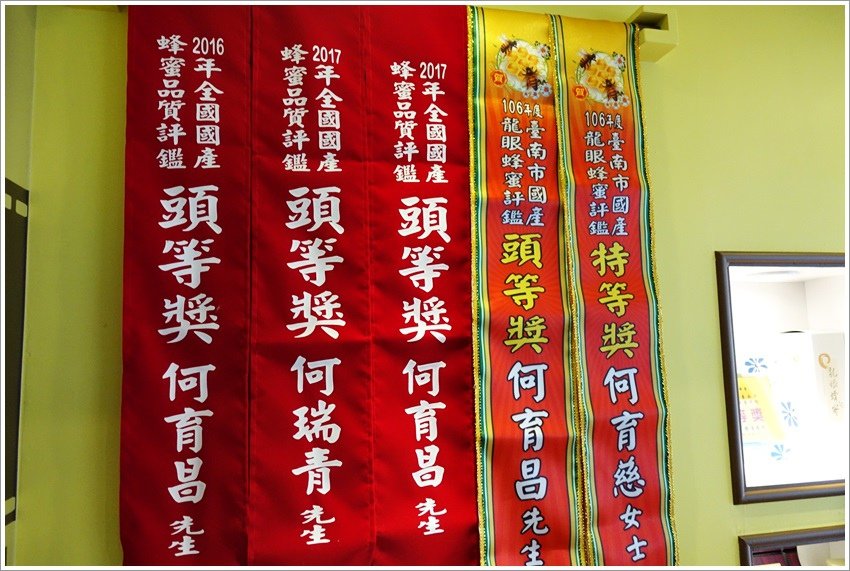 2016年全國國產
蜂蜜品質評鑑
頭等獎
何育昌先生
2017年全國國產
蜂蜜品質評鑑
頭等獎
何瑞青先生
2017年全國國產
蜂蜜品質評鑑
頭等獎
何育昌先生
賀
106年度
臺南市國產
龍眼蜂蜜評鑑
頭等獎
何育昌先生
賀
106年度
臺南市國產
龍眼蜂蜜評鑑
特等獎
何育慈女士